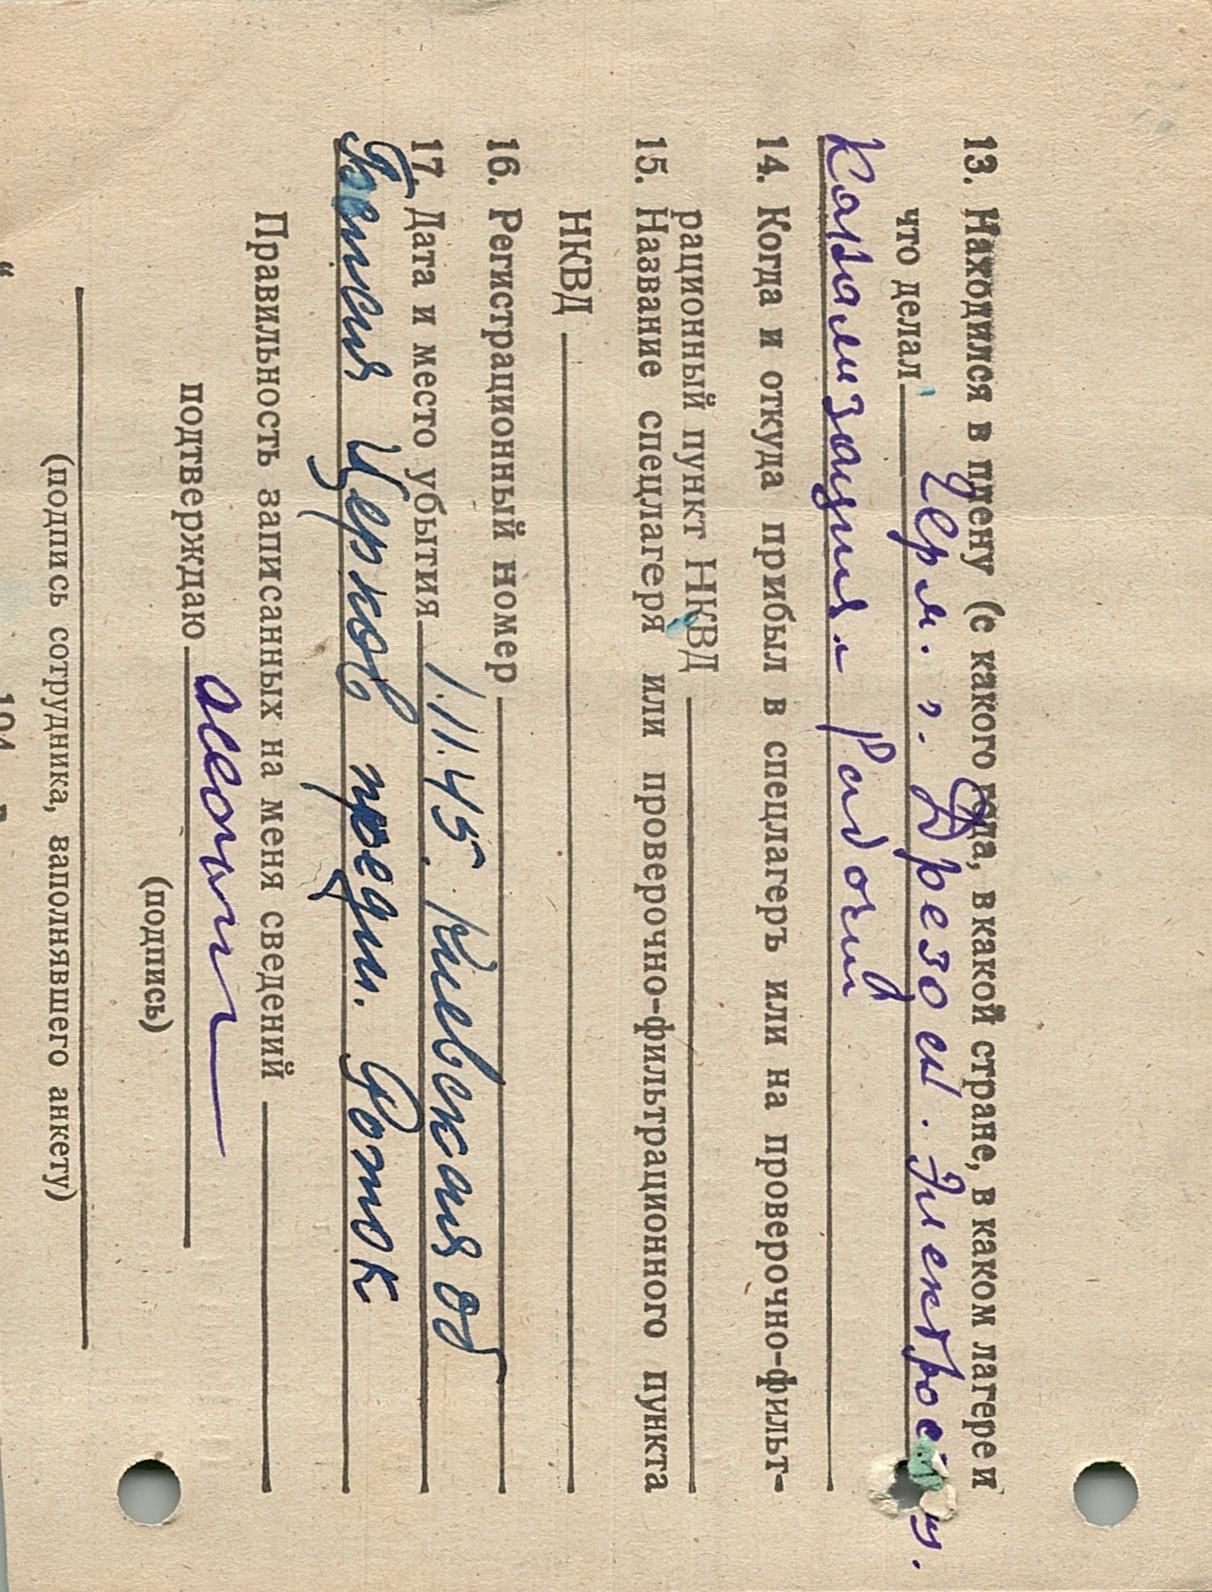 13. Находился в плену (с какого года, в какой стране, в каком лагере и
что делал Герм. г. Дрезден.
канализация Рабочий
14. Когда и откуда прибыл в спецлагеръ или на проверочно-фильт-
рационный пункт НКВД
15. Название спецлагеря или проверочно-фильтрационного пункта
НКВД
16. Регистрационный номер
17. Дата и место убытия 1.11.45. Киевская об
Церков предм. Роток
Правильность записанных на меня сведений
подтверждаю
(подпись)
(подпись сотрудника, заполнявшего анкету)
"
194